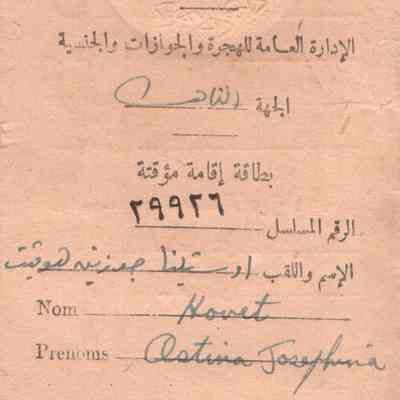 الإدارة العامة للهجرة والجوازات والجنسية
الجهة القاهرة
بطاقة إقامة مؤقتة
٢٩٩٢٦
الرقم المسلسل
الإسم واللقب اوستينا جوزفينه هوفيت
Nom Hovet
Prenoms Astina Josephina